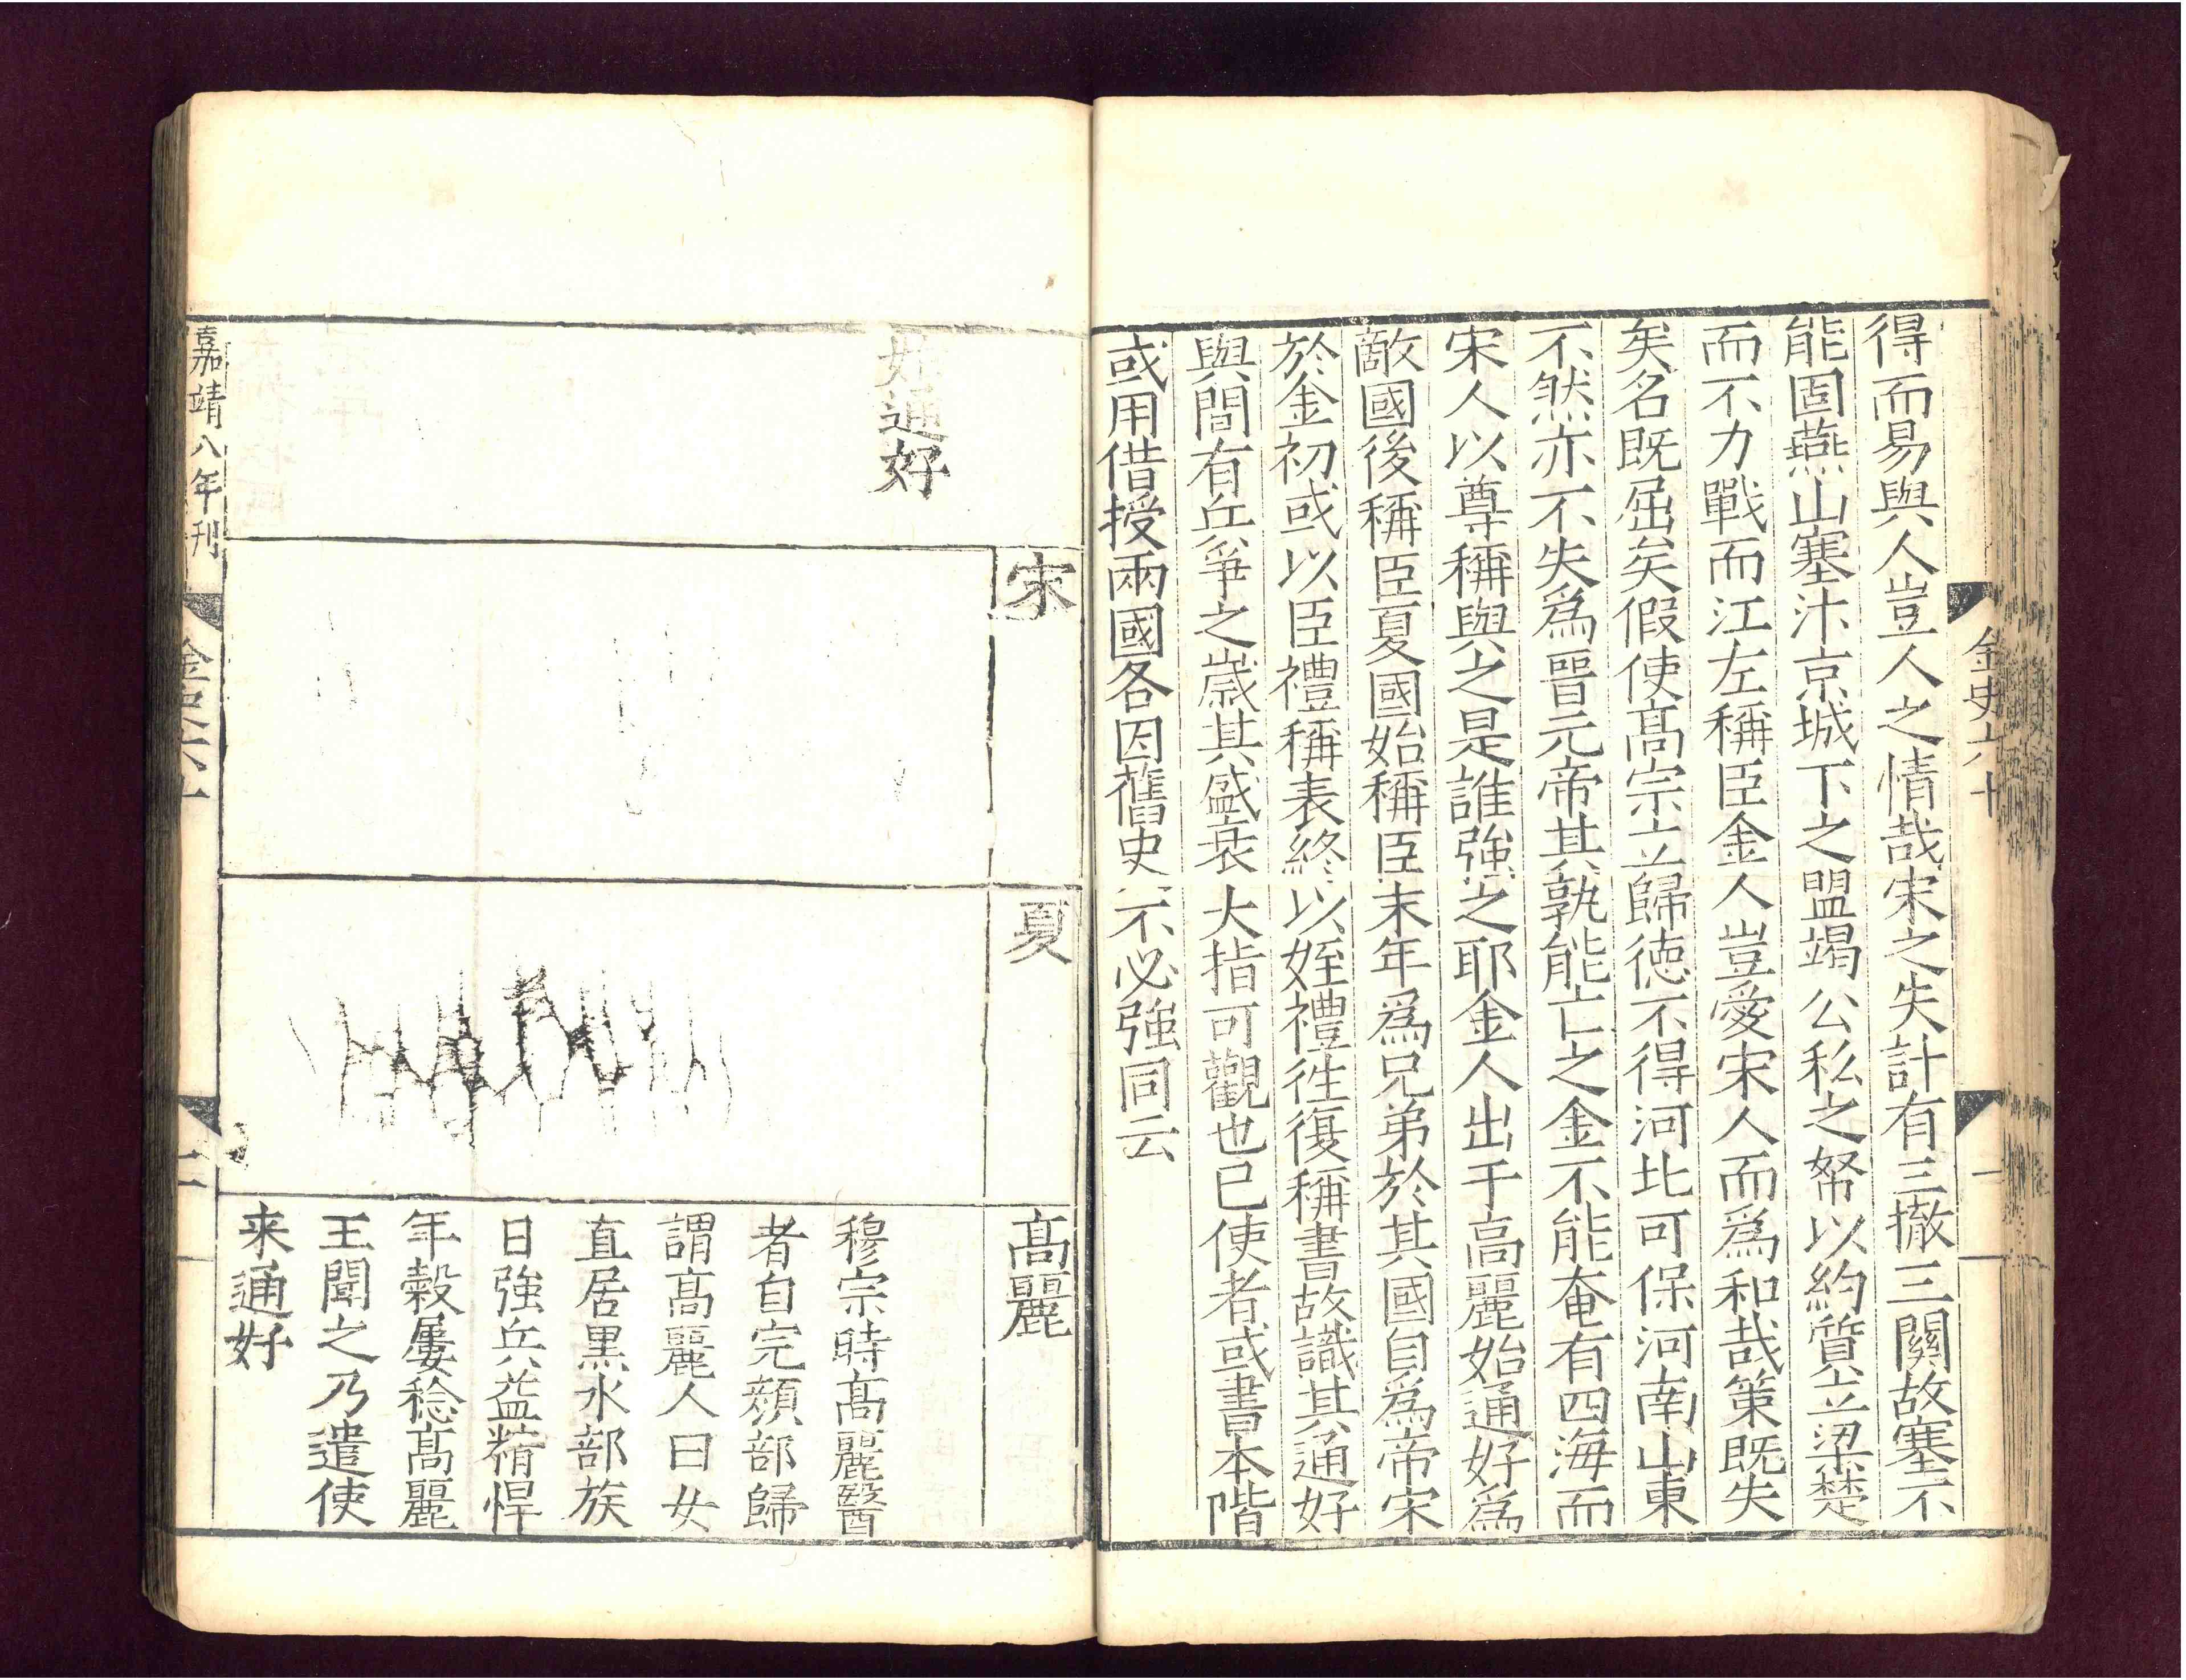 金史六十
二
得而易與人豈人之情哉宋之失計有三撤三關故塞不
能固燕山塞汴京城下之盟竭公私之帑以約質立梁楚
而不力戰而江左稱臣金人豈愛宋人而爲和哉策既失
矣名既屈矣假使髙宗立歸徳不得河北可保河南山東
不然亦不失爲晉元帝其孰能亡之金不能奄有四海而
宋人以尊稱與之是誰強之耶金人出于高麗始通好爲
敵國後稱臣夏國始稱臣末年爲兄弟於其國自爲帝宋
於金初或以臣禮稱表終以姪禮徃復稱書故識其通好
與間有兵爭之歲其盛衰大指可觀也已使者或書本階
或用借授兩國各因舊史不必強同云
宋
夏
髙麗
好通好
穆宗時髙麗醫
者自完顏部歸
謂髙麗人曰女
直居黒水部族
日強兵益精悍
年榖屢稔髙麗
王聞之乃遣使
来通好
嘉靖八年刊
金史六十
二